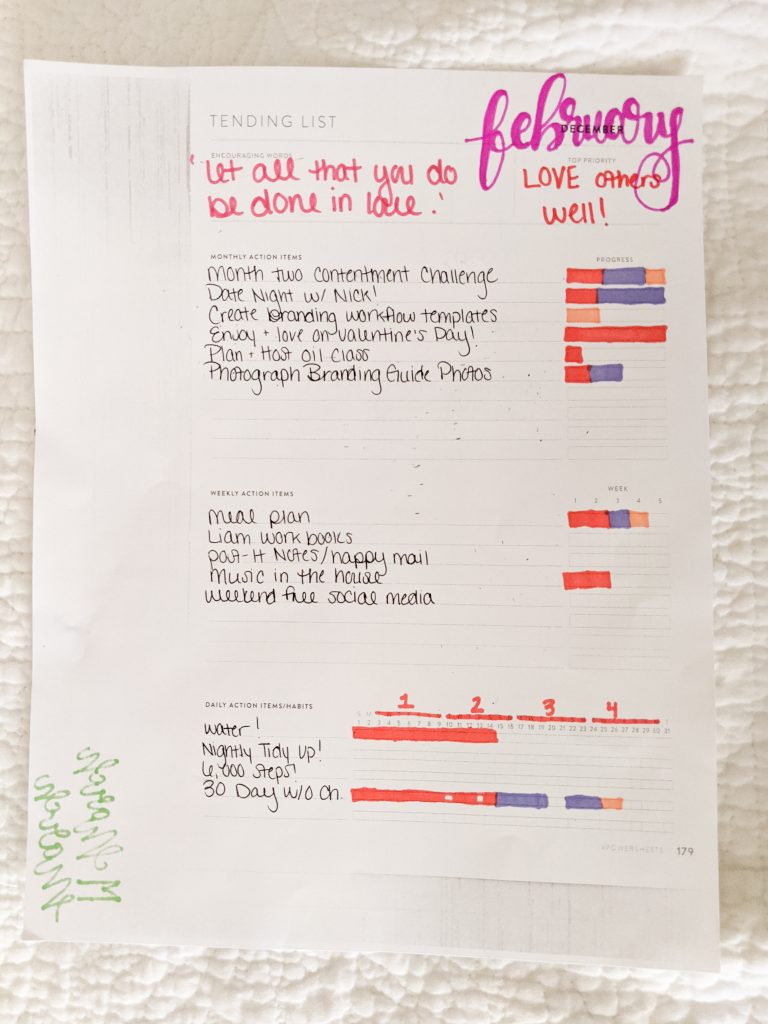 TENDING LIST
february
DECEMBER
ENCOURAGING WORDS
TOP PRIORITY
'Let all that you do
be done in love.'
LOVE others
well!
MONTHLY ACTION ITEMS
PROGRESS
Month two contentment challenge
Date Night w/ Nick!
Create branding workflow templates
Enjoy + love on Valentine's Day!
Plan + Host Oil Class
Photograph Branding Guide Photos
WEEKLY ACTION ITEMS
WEEK
1 2 3 4 5
meal plan
Liam work books
post-it Notes/happy mail
music in the house
weekend free social media
DAILY ACTION ITEMS/HABITS
1 2 3 4
S M
1 2 3 4 5 6 7 8 9 10 11 12 13 14 15 16 17 18 19 20 21 22 23 24 25 26 27 28 29 30 31
water!
Nightly Tidy up!
6,000 Steps!
30 Day w/o Ch.
#POWERSHEETS 179